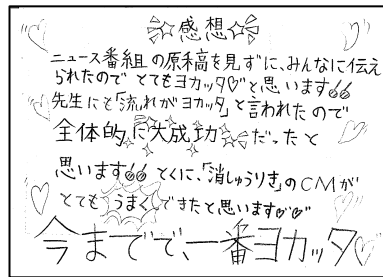 ☆感想☆
ニュース番組の原稿を見ずに、みんなに伝え
られたので とてもヨカッタ♡と思います
先生にも「流れがヨカッタ」と言われたので
全体的に大成功だったと
思います とくに、「消しゅうりき」のCMが
とてもうまくできたと思います♡♡
今までで、一番ヨカッタ♡